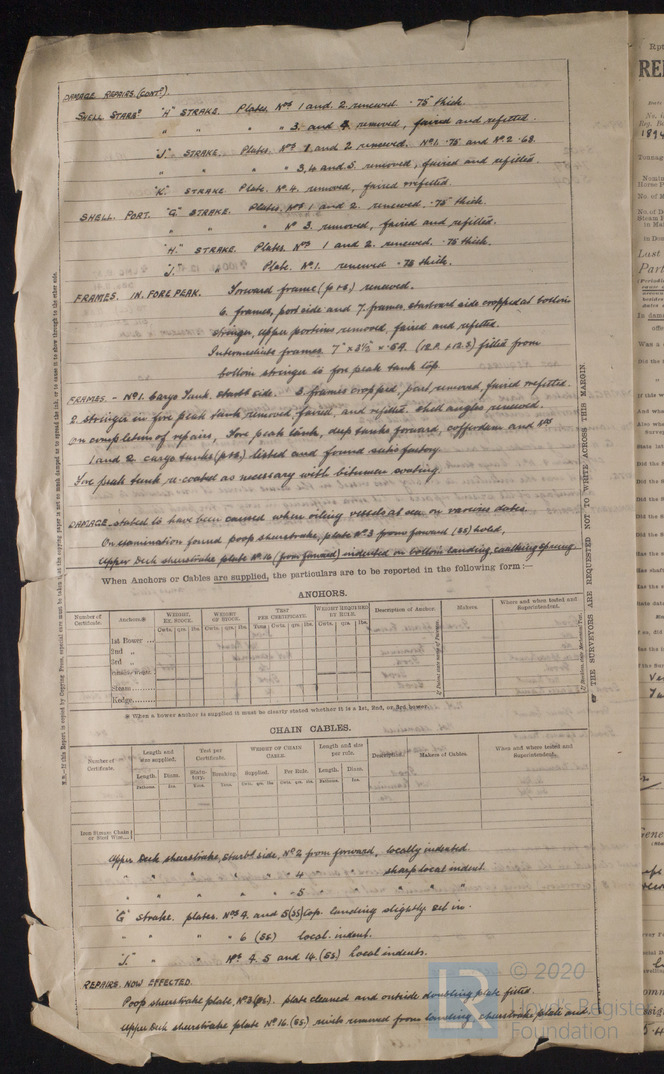 DAMAGE REPAIRS. (CONTD).
SHELL STARBD "H" STRAKE. Plates. Nos 1 and 2 renewed .75" thick.
" " " 3 and 4 removed, faired and refitted.
"J" STRAKE. Plates. Nos 1 and 2 renewed. No1. .75 and No 2 .68.
" " " 3, 4 and 5 removed, faired and refitted.
"K" STRAKE Plate No. 4. removed, faired & refitted.
SHELL. PORT. "G" STRAKE. Plates, Nos 1 and 2 renewed. .75" thick.
" " " No 3. removed, faired and refitted.
"H." STRAKE. Plates Nos 1 and 2. renewed .75 thick.
"J." " Plate. No.1. renewed thick.
FRAMES. IN. FORE PEAK. Forward frame (p & s) renewed.
6. frames, port side and 7. frames starboard side cropped at bottom
stringer, upper portions removed, faired and refitted.
Intermediate frames 7" x 3½" x .54. (12 P. & 12 S) fitted from
bottom stringer to fore peak tank top.
FRAMES. - No 1. Cargo Tank, starbd side. 3 frames cropped, part removed, faired & refitted.
2 stringer in fore peak tank removed, faired, and refitted. shell angles renewed.
On completion of repairs, Fore peak tank, deep tanks forward, cofferdam and Nos
1 and 2 cargo tanks (p & s) tested and found satisfactory.
Fore peak tank re-coated as necessary with bitumen coating.
DAMAGE. stated to have been caused when oiling vessels at sea on various dates.
On examination found poop sheerstrake, plate No 3 from forward (SS) holed,
Upper Deck sheerstrake plate No. 16 (from forward) indented on bottom landing, caulking sprung.
When Anchors or Cables are supplied, the particulars are to be reported in the following form :—
ANCHORS.
Number of Certificate. Anchors.* WEIGHT, EX. STOCK. WEIGHT OF STOCK. TEST PER CERTIFICATE. WEIGHT REQUIRED BY RULE. Description of Anchor. Makers. Where and when tested and Superintendent.
Cwts. qrs. lbs. Cwts. qrs. lbs. Cwts. qrs. lbs. Cwts. qrs. lbs.
1st Bower ...
2nd „
3rd „
Stream
Kedge
* When a Bower anchor is supplied it must be clearly stated whether it is a 1st, 2nd, or 3rd bower.
CHAIN CABLES.
Number of Certificate. Length and size supplied. Test per Certificate. WEIGHT OF CHAIN CABLE. Length and size per rule. Description. Makers of Cables. Where and when tested and Superintendent.
Length. Diam. Statutory. Breaking. Supplied. Per Rule. Length. Diam.
Fathoms. Ins. Tons. Tons. Cwts. qrs. lbs. Cwts. qrs. lbs. Fathoms. Ins.
Iron Stream Chain or Steel Wire...
Upper Deck sheerstrake, starbd side, No 2 from forward, locally indented
" " " " " 4 " " sharp local indent.
" " " " " 5 " " " " "
"G" strake. plates. Nos 4. and 5 (SS) top. landing slightly set in.
" " " 6 (SS) local indent.
"J." " " Nos 4. 5 and 14. (SS) local indents.
REPAIRS. NOW EFFECTED.
Poop sheerstrake plate, No 3 plate cleaned and outside doubling plate fitted.
Upper Deck sheerstrake plate No 16. (SS.) rivets removed from landing, sheerstrake plate and
THE SURVEYORS ARE REQUESTED NOT TO WRITE ACROSS THIS MARGIN.
© 2020
Lloyd's Register
Foundation